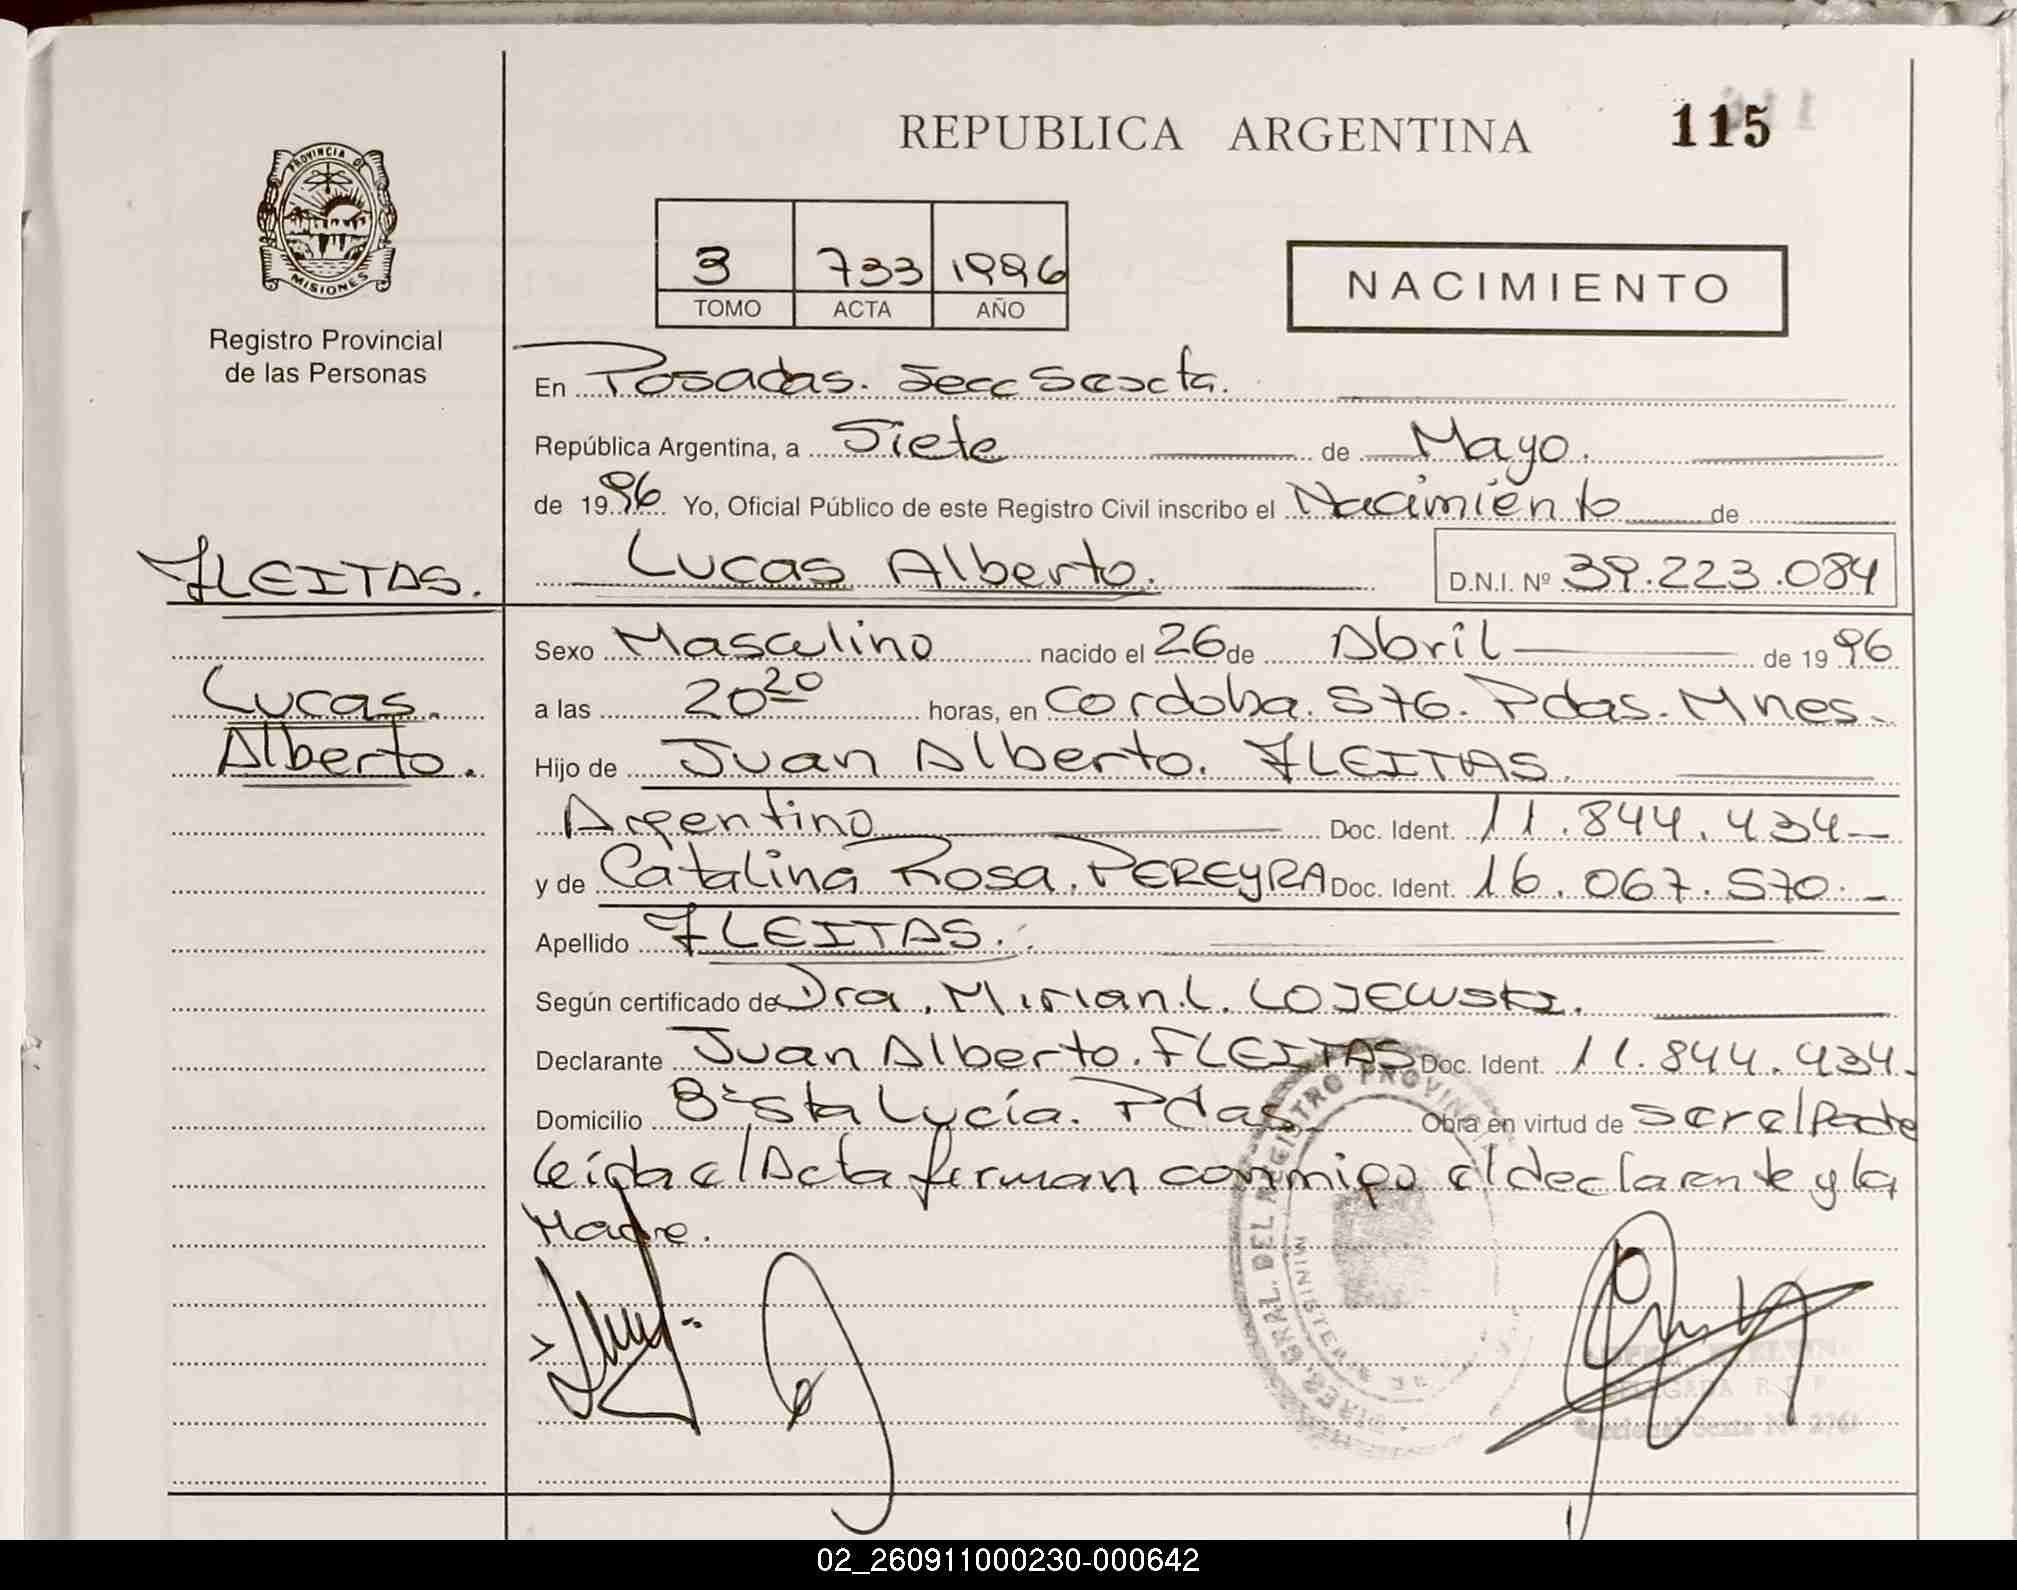 REPUBLICA ARGENTINA
115
PROVINCIA DE
MISIONES
Registro Provincial
de las Personas
3 733 1996
TOMO ACTA AÑO
NACIMIENTO
En Posadas. Secc Sexcta.
República Argentina, a Siete de Mayo.
de 1996 Yo, Oficial Público de este Registro Civil inscribo el Nacimiento de
FLEITAS.
Lucas Alberto.
D.N.I. Nº 39.223.084
Sexo Masculino nacido el 26 de Abril de 1996
Lucas.
a las 20 20 horas, en Cordoba. 576. Pdas. Mnes.
Alberto.
Hijo de Juan Alberto. FLEITAS.
Argentino Doc. Ident. 11.844.434
y de Catalina Rosa. PEREYRA Doc. Ident. 16.067.570.
Apellido FLEITAS.
Según certificado de Dra. Mirian. L. LOJEWski.
Declarante Juan Alberto. FLEITAS Doc. Ident. 11.844.434
Domicilio Bº Sta Lucía. Pdas Obra en virtud de ser el Padre
leída el Acta firman conmigo el declarante y la
Madre.
GRAL. DEL REGISTRO PROVINCI
DELEGADA R P P
Seccional Sexta Nº 276
02_260911000230-000642